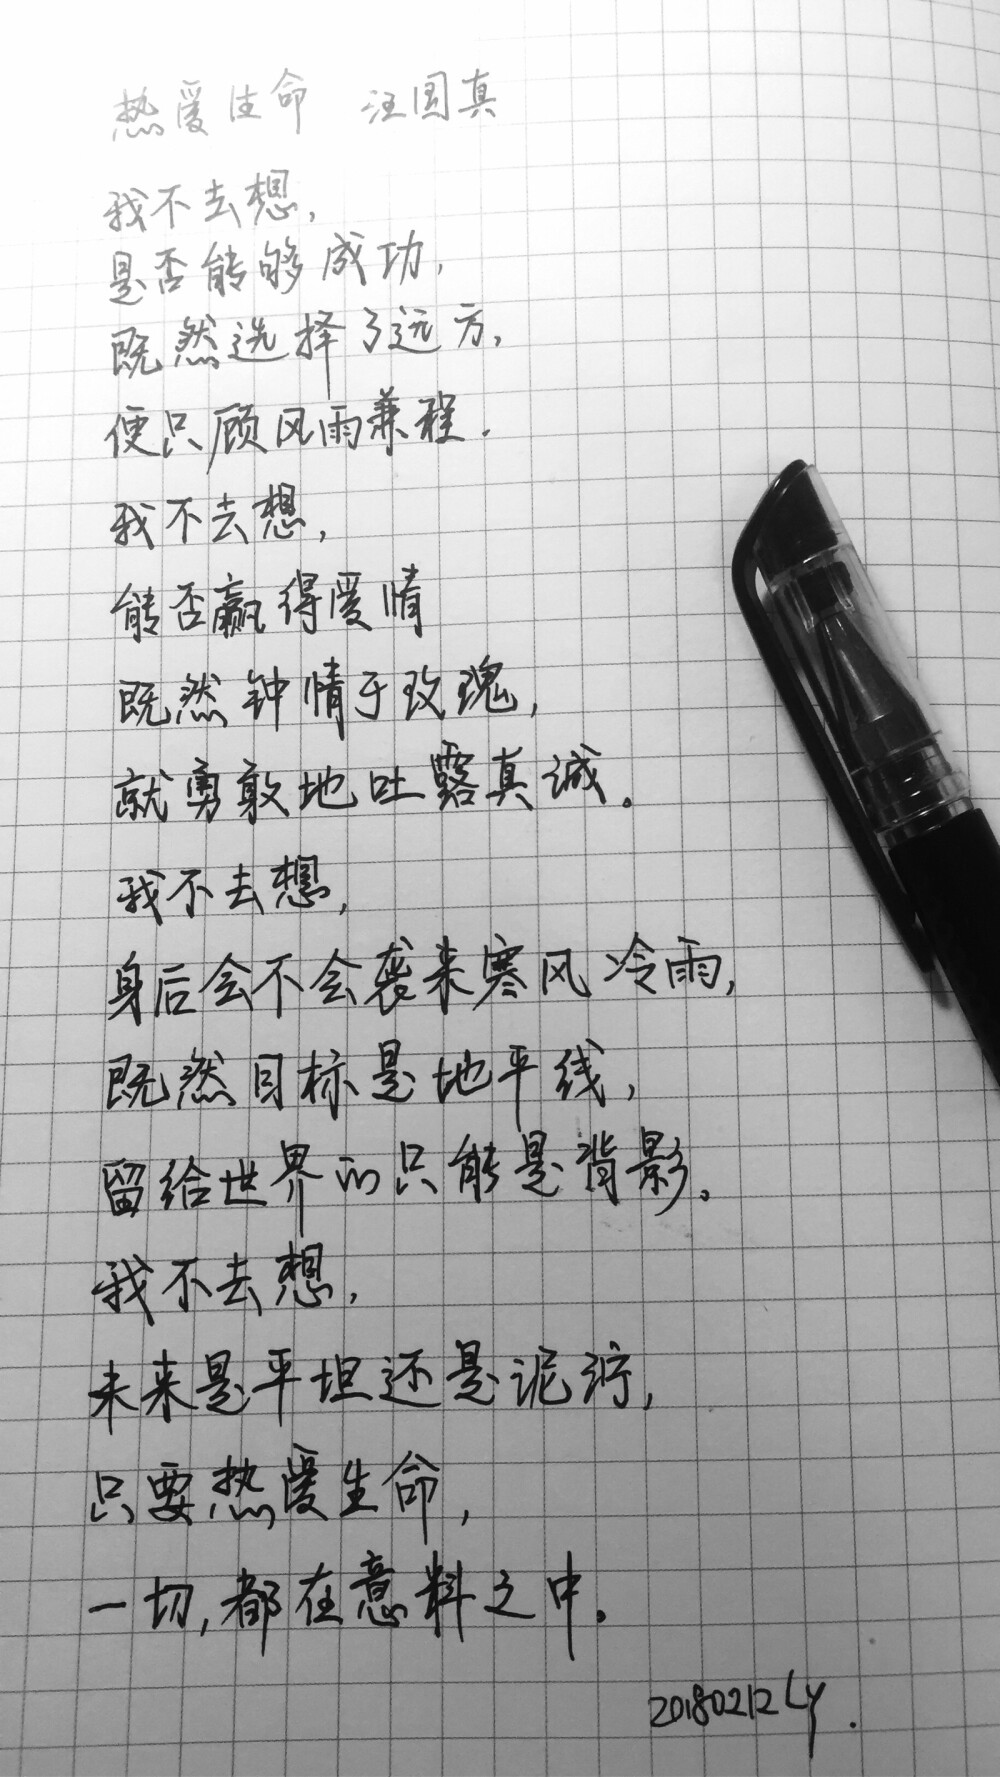 热爱生命 汪国真
我不去想,
是否能够成功,
既然选择了远方,
便只顾风雨兼程.
我不去想,
能否赢得爱情
既然钟情于玫瑰,
就勇敢地吐露真诚。
我不去想,
身后会不会袭来寒风冷雨,
既然目标是地平线,
留给世界的只能是背影。
我不去想,
未来是平坦还是泥泞,
只要热爱生命,
一切,都在意料之中。
20180212 Ly.